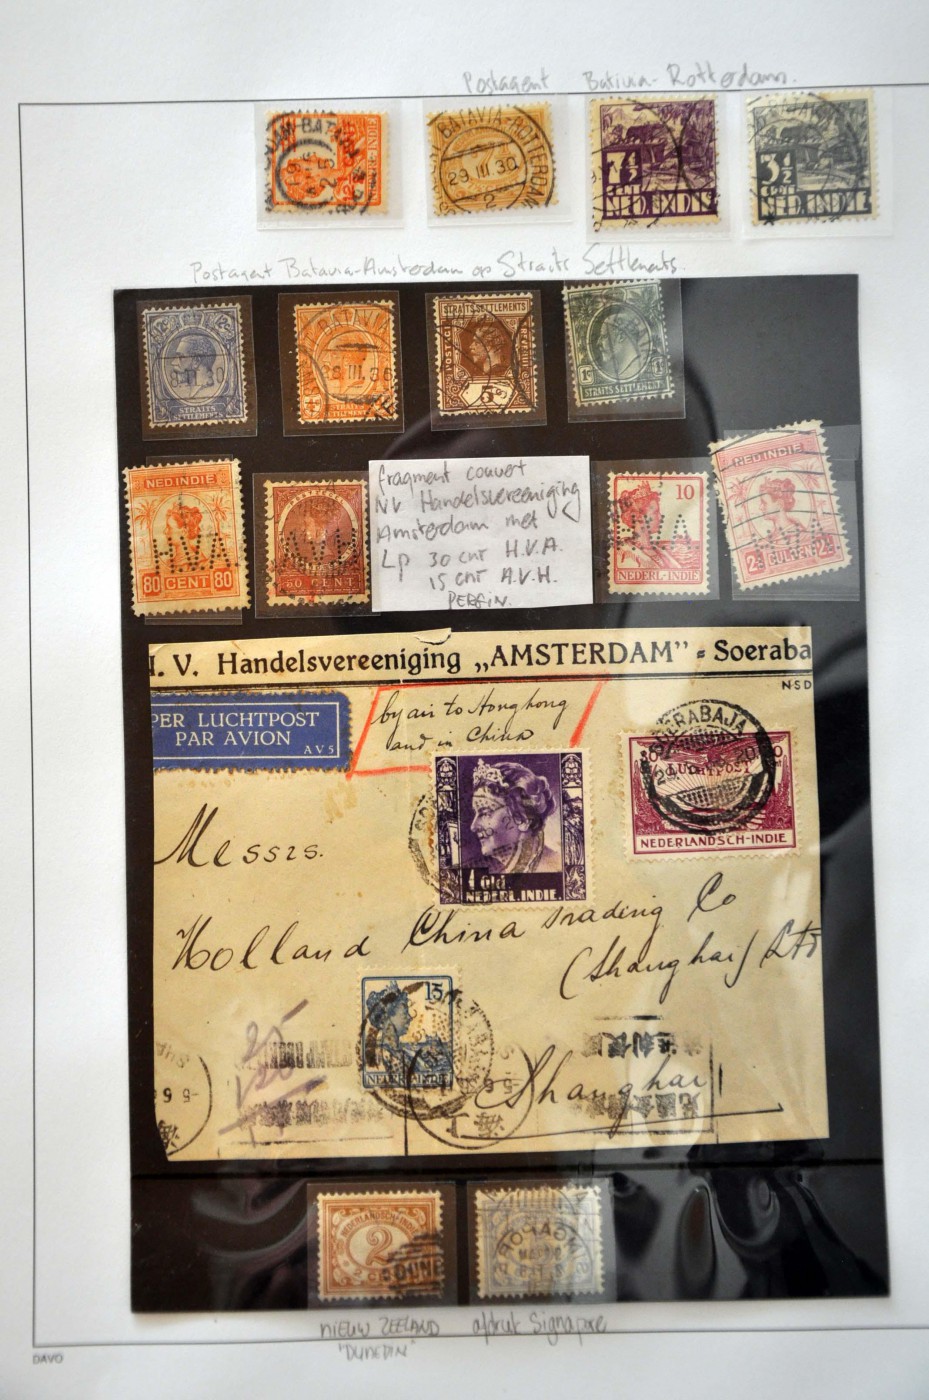 Postagent Batavia-Rotterdam.
BATAVIA-ROTTERDAM
29.III.30
2
7½
CENT
NED.INDIE
3½
CENT
NED.INDIE
Postagent Batavia-Amsterdam op Straits Settlements.
STRAITS
SETTLEMENTS
BATAVIA
STRAITS SETTLEMENTS
POSTAGE
REVENUE
5c
1c
STRAITS SETTLEMENTS
NED.INDIE
H.V.A.
80 CENT 80
CENT
fragment couvert
NV Handelsvereeniging
Amsterdam met
Lp 30 cnt H.V.A.
15 cnt A.V.H.
PERFIN.
10
H.V.A.
NEDERL-INDIE
NED.INDIE
H.V.A.
GULDEN
V. Handelsvereeniging „AMSTERDAM” = Soeraba
NSD
PER LUCHTPOST
PAR AVION
AV5
by air to Hongkong
and in China
SOERABAJA
LUCHTPOST
NEDERLANDSCH-INDIE
1 Gld.
NEDERL.INDIE.
Messrs.
Holland China Trading Co
(Shanghai) Ltd
15
NEDERL-INDIE
Shanghai
NEDERLANDSCH-INDIE
2
DUNE
SINGAPORE
NIEUW ZEELAND
"DUNEDIN"
afdruk Signapore
DAVO